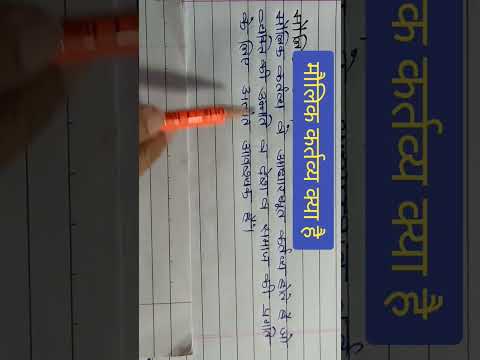 क कर्तव्य क्या है
मौलिक कर्तव्य क्या है
मौलि
मौलिक कर्तव्य वे आधारभूत कर्तव्य होते हैं जो
व्यक्ति की उन्नति व देश व समाज की प्रगति
के लिए आवश्यक हैं।